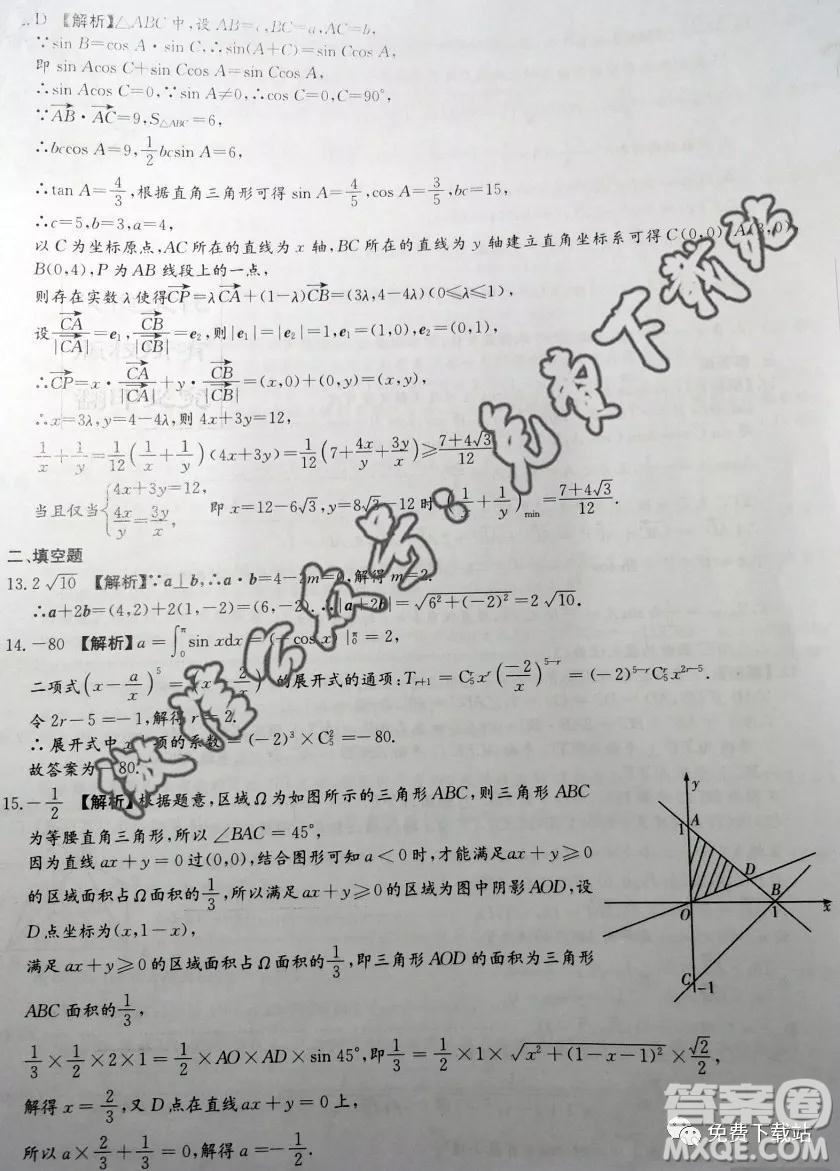 D 【解析】△ABC中,设AB=c,BC=a,AC=b,
∵sin B=cos A·sin C,∴sin(A+C)=sin Ccos A,
即 sin Acos C+sin Ccos A=sin Ccos A,
∴sin Acos C=0,∵sin A≠0,∴cos C=0,C=90°,
∵AB·AC=9,S△ABC=6,
∴bccos A=9,1/2 bcsin A=6,
∴tan A=4/3,根据直角三角形可得 sin A=4/5,cos A=3/5,bc=15,
∴c=5,b=3,a=4,
以C为坐标原点,AC所在的直线为x轴,BC所在的直线为y轴建立直角坐标系可得C(0,0),A(3,0)
B(0,4),P为AB线段上的一点,
则存在实数λ使得CP=λCA+(1-λ)CB=(3λ,4-4λ)(0≤λ≤1),
设 CA/|CA|=e₁,CB/|CB|=e₂,则|e₁|=|e₂|=1,e₁=(1,0),e₂=(0,1),
∴CP=x·CA/|CA|+y·CB/|CB|=(x,0)+(0,y)=(x,y),
∴x=3λ,y=4-4λ,则4x+3y=12,
1/x+1/y=1/12(1/x+1/y)(4x+3y)=1/12(7+4x/y+3y/x)≥(7+4√3)/12
当且仅当{4x+3y=12, 4x/y=3y/x, 即x=12-6√3,y=8√3-12时(1/x+1/y)min=(7+4√3)/12.
二、填空题
13.2√10 【解析】∵a⊥b,∴a·b=4-2m=0,解得m=2.
∴a+2b=(4,2)+2(1,-2)=(6,-2).∴|a+2b|=√(6²+(-2)²)=2√10.
14.-80 【解析】a=∫₀^π sin xdx=(-cos x)|₀^π=2,
二项式(x-a/x)⁵=(x-2/x)⁵的展开式的通项:Tr+1=C₅^r x^r(-2/x)^(5-r)=(-2)^(5-r)C₅^r x^(2r-5).
令2r-5=-1,解得r=2.
∴展开式中x 项的系数=(-2)³×C₅²=-80.
故答案为-80.
15.-1/2 【解析】根据题意,区域Ω为如图所示的三角形ABC,则三角形ABC
为等腰直角三角形,所以∠BAC=45°,
因为直线ax+y=0过(0,0),结合图形可知a<0时,才能满足ax+y≥0
的区域面积占Ω面积的1/3,所以满足ax+y≥0的区域为图中阴影AOD,设
D点坐标为(x,1-x),
满足ax+y≥0的区域面积占Ω面积的1/3,即三角形AOD的面积为三角形
ABC面积的1/3,
1/3×1/2×2×1=1/2×AO×AD×sin 45°,即1/3=1/2×1×√(x²+(1-x-1)²)×√2/2,
解得x=2/3,又D点在直线ax+y=0上,
所以a×2/3+1/3=0,解得a=-1/2.
y
1
A
D
O
B
1
x
C
-1
微信公众号:免费下载站
答案圈
MXQE.COM
免费下载站